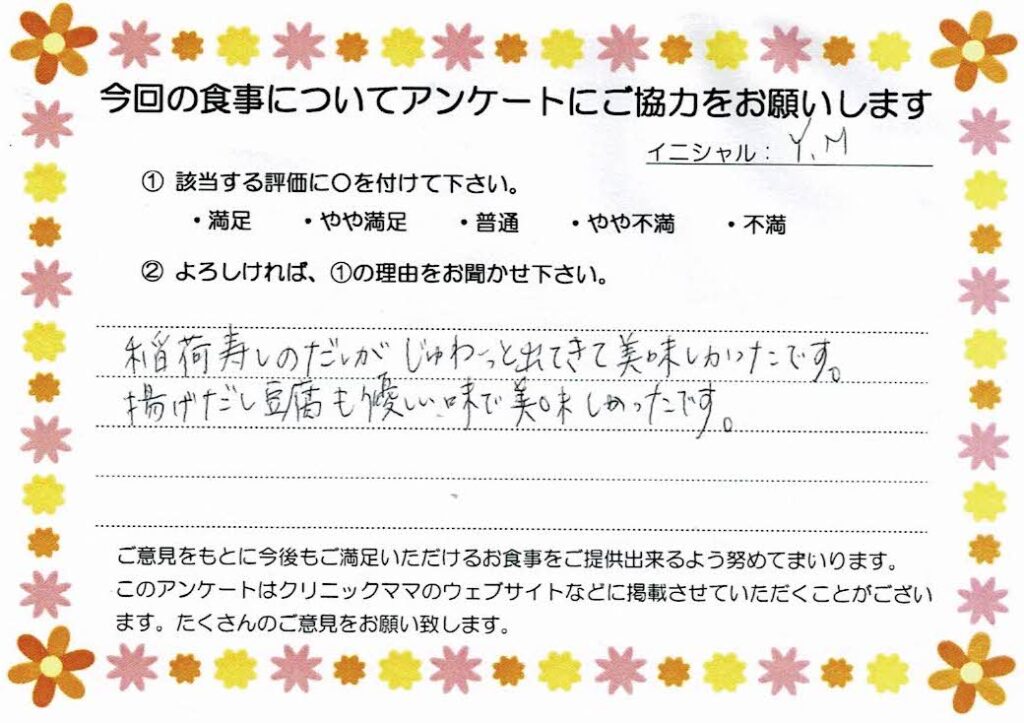 今回の食事についてアンケートにご協力をお願いします
イニシャル： Y.M
① 該当する評価に〇を付けて下さい。
・満足 ・やや満足 ・普通 ・やや不満 ・不満
② よろしければ、①の理由をお聞かせ下さい。
稲荷寿しのだしがじゅわーっと出てきて美味しかったです。
揚げだし豆腐も優しい味で美味しかったです。
ご意見をもとに今後もご満足いただけるお食事をご提供出来るよう努めてまいります。
このアンケートはクリニックママのウェブサイトなどに掲載させていただくことがござい
ます。たくさんのご意見をお願い致します。